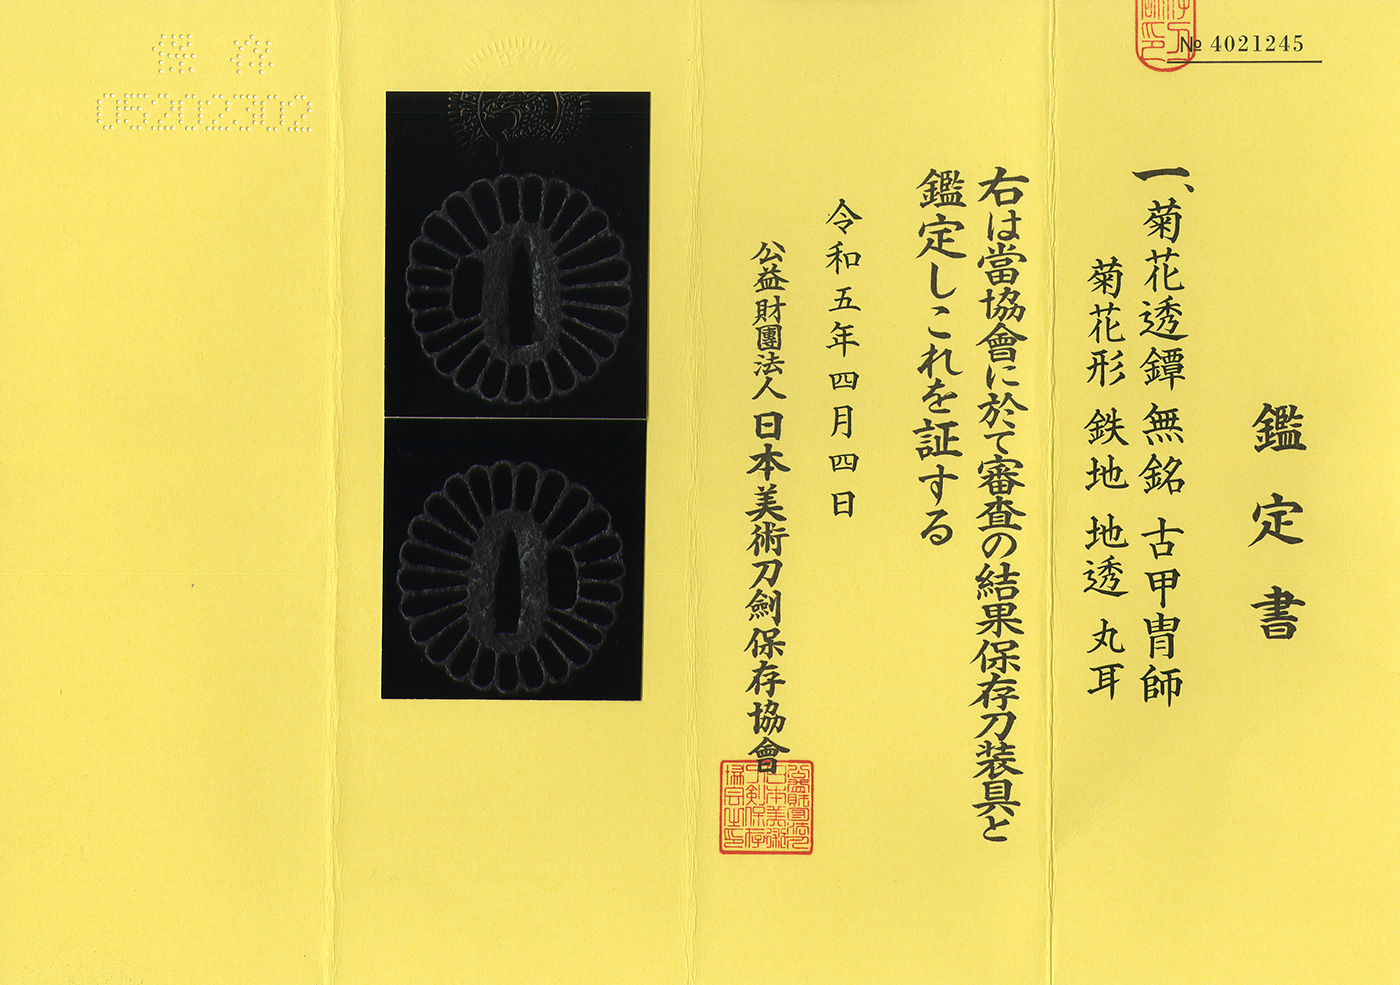 № 4021245
鑑定書
一、菊花透鐔 無銘 古甲冑師
菊花形 鉄地 地透 丸耳
右は當協會に於て審査の結果保存刀装具と
鑑定しこれを証する
令和五年四月四日
公益財團法人 日本美術刀劍保存協會
保存
05202302